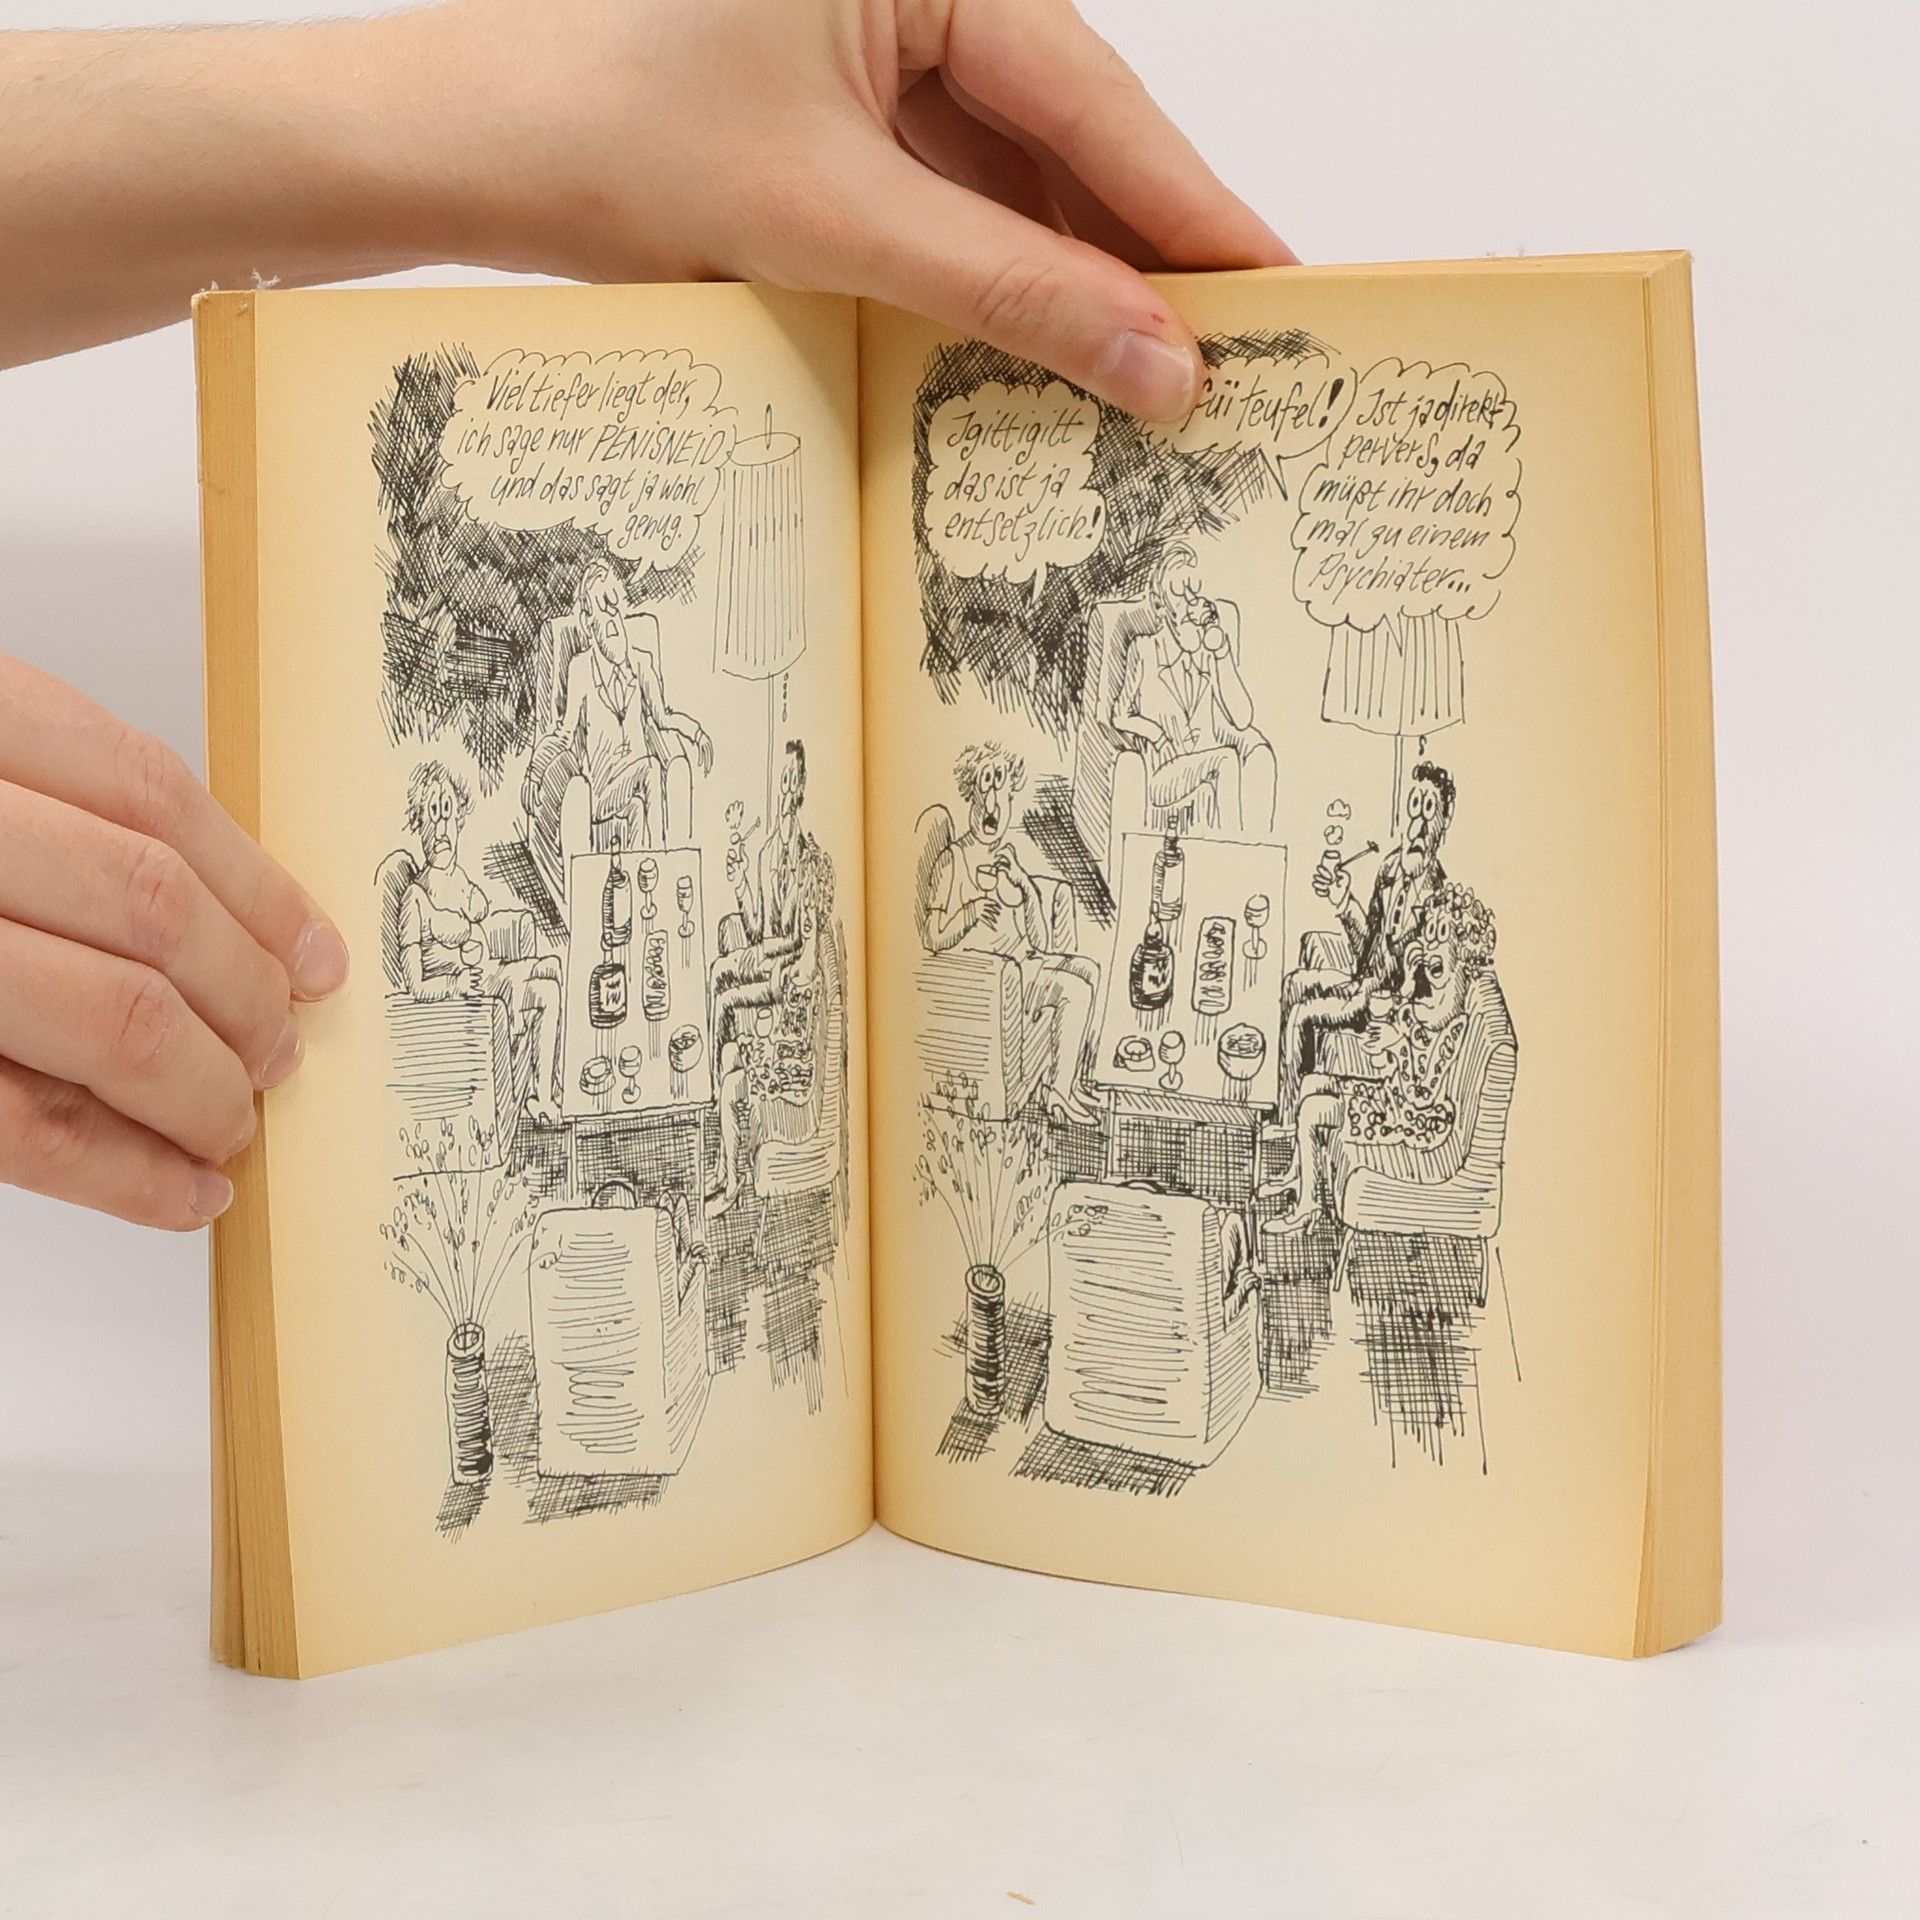 Viel tiefer liegt der,
ich sage nur PENISNEID
und das sagt ja wohl
genug.
Igittigitt
das ist ja
entsetzlich!
füi teufel!
Ist ja direkt
pervers, da
müßt ihr doch
mal zu einem
Psychiater...